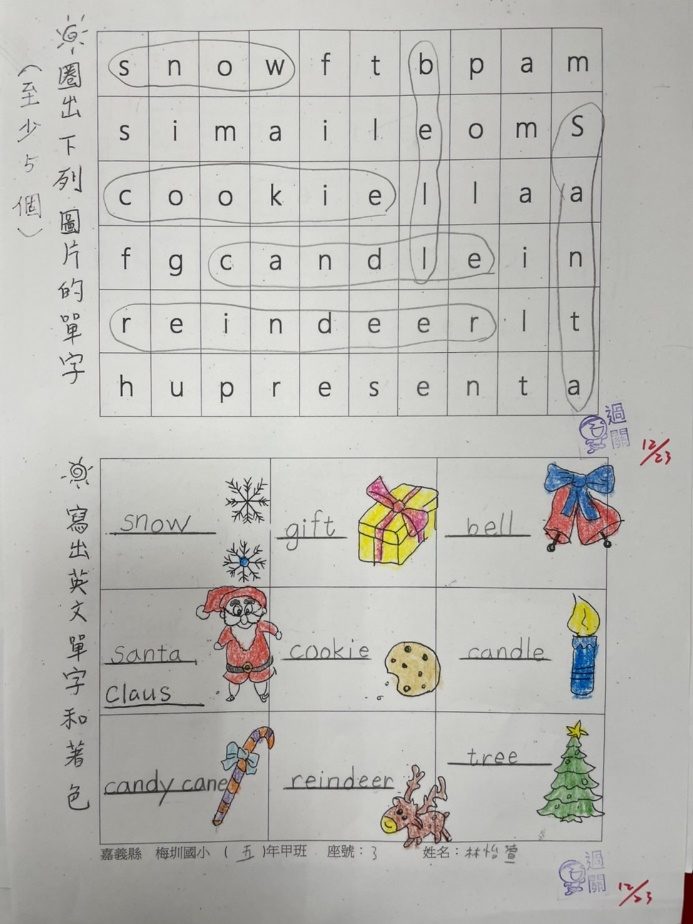 圈出下列圖片的單字
(至少5個)
s n o w f t b p a m
s i m a i l e o m S
c o o k i e l l a a
f g c a n d l e i n
r e i n d e e r l t
h u p r e s e n t a
過關
12/23
寫出英文單字和著色
snow
gift
bell
santa
claus
cookie
candle
candy cane
reindeer
tree
嘉義縣 梅圳國小 (五)年甲班 座號:3 姓名:林怡萱
過關
12/23